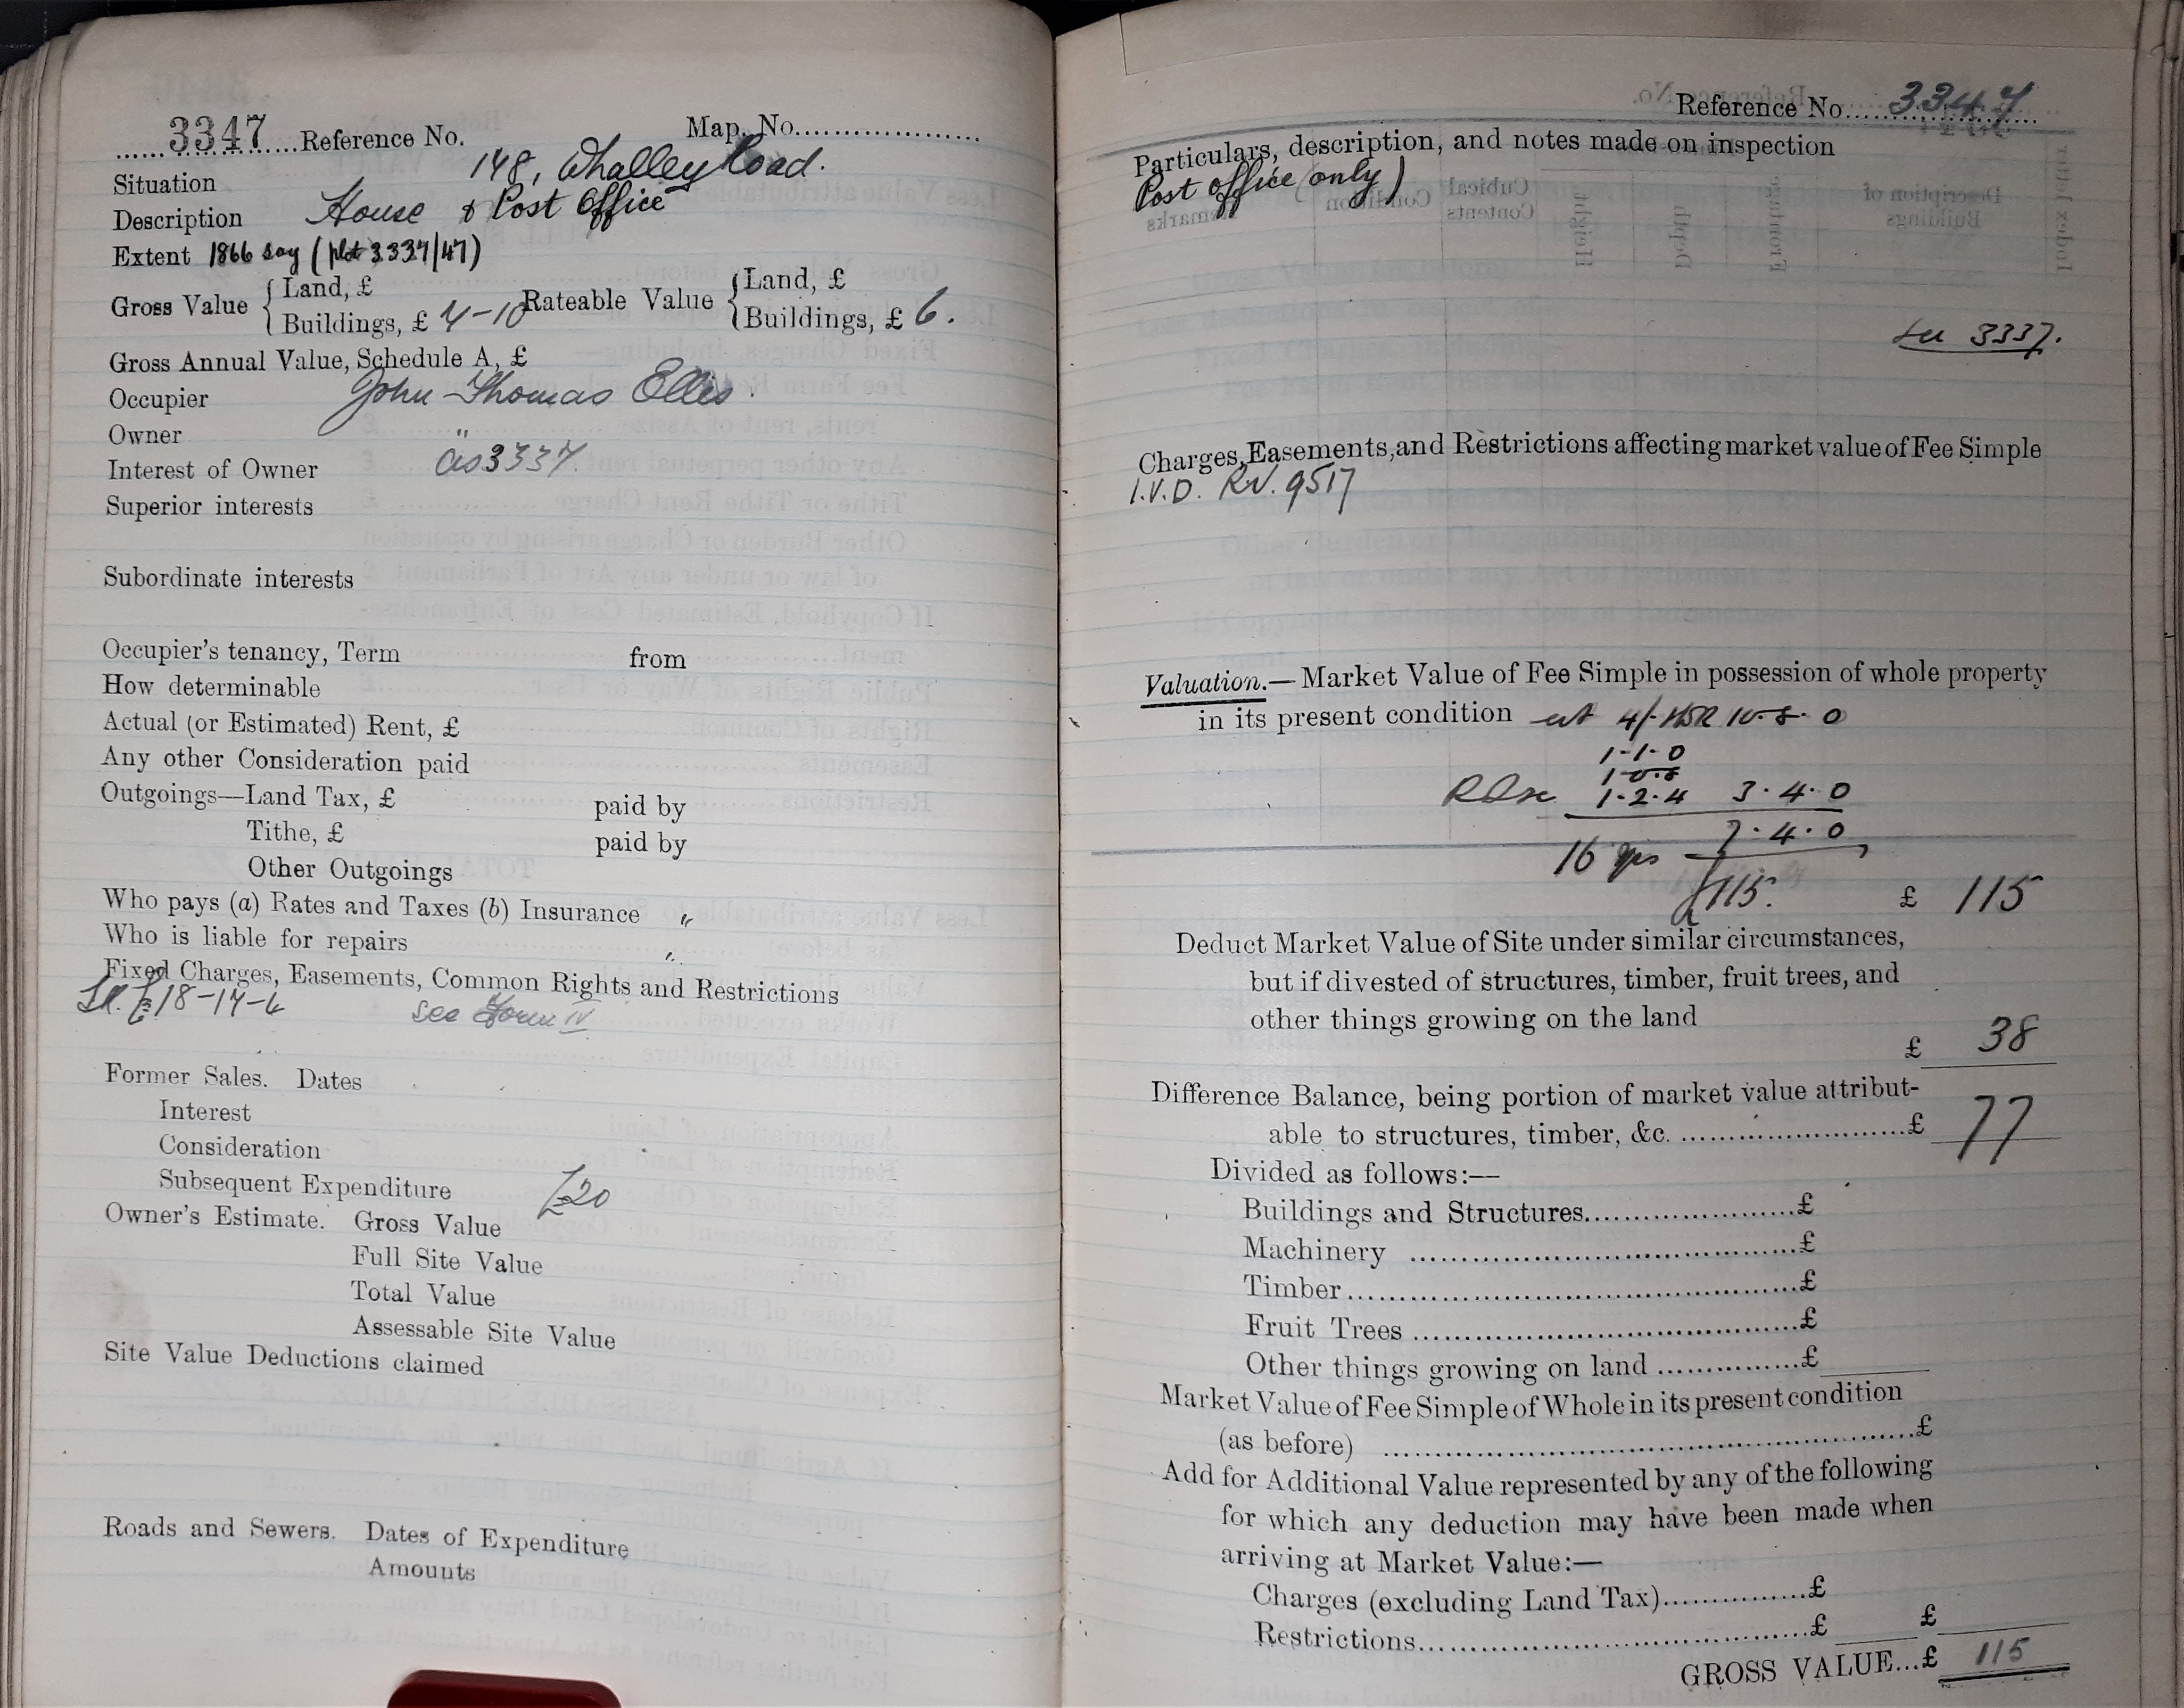 3347 Reference No. Map. No.
Situation 148, Whalley Road.
Description House & Post Office
Extent 1866 say (plot 3337/47)
Gross Value { Land, £
Buildings, £ 7-10
Rateable Value { Land, £
Buildings, £ 6.
Gross Annual Value, Schedule A, £
Occupier John Thomas Ellis.
Owner "
Interest of Owner as 3337.
Superior interests
Subordinate interests
Occupier's tenancy, Term from
How determinable
Actual (or Estimated) Rent, £
Any other Consideration paid
Outgoings—Land Tax, £ paid by
Tithe, £ paid by
Other Outgoings
Who pays (a) Rates and Taxes (b) Insurance "
Who is liable for repairs "
Fixed Charges, Easements, Common Rights and Restrictions
£18-17-6 see Form IV
Former Sales. Dates
Interest
Consideration
Subsequent Expenditure £20
Owner's Estimate. Gross Value
Full Site Value
Total Value
Assessable Site Value
Site Value Deductions claimed
Roads and Sewers. Dates of Expenditure
Amounts
Reference No. 3347
Particulars, description, and notes made on inspection
Post office (only)
see 3337.
Charges, Easements, and Restrictions affecting market value of Fee Simple
I.V.D. RV. 9517
Valuation.—Market Value of Fee Simple in possession of whole property
in its present condition at 4/- 10.8.0
1-1-0
1-0-8
1-2-4 3.4.0
7.4.0
16 yrs
£115. £ 115
Deduct Market Value of Site under similar circumstances,
but if divested of structures, timber, fruit trees, and
other things growing on the land
£ 38
Difference Balance, being portion of market value attribut-
able to structures, timber, &c. £ 77
Divided as follows:—
Buildings and Structures £
Machinery £
Timber £
Fruit Trees £
Other things growing on land £
Market Value of Fee Simple of Whole in its present condition
(as before) £
Add for Additional Value represented by any of the following
for which any deduction may have been made when
arriving at Market Value:—
Charges (excluding Land Tax) £
Restrictions £ £
GROSS VALUE...£ 115